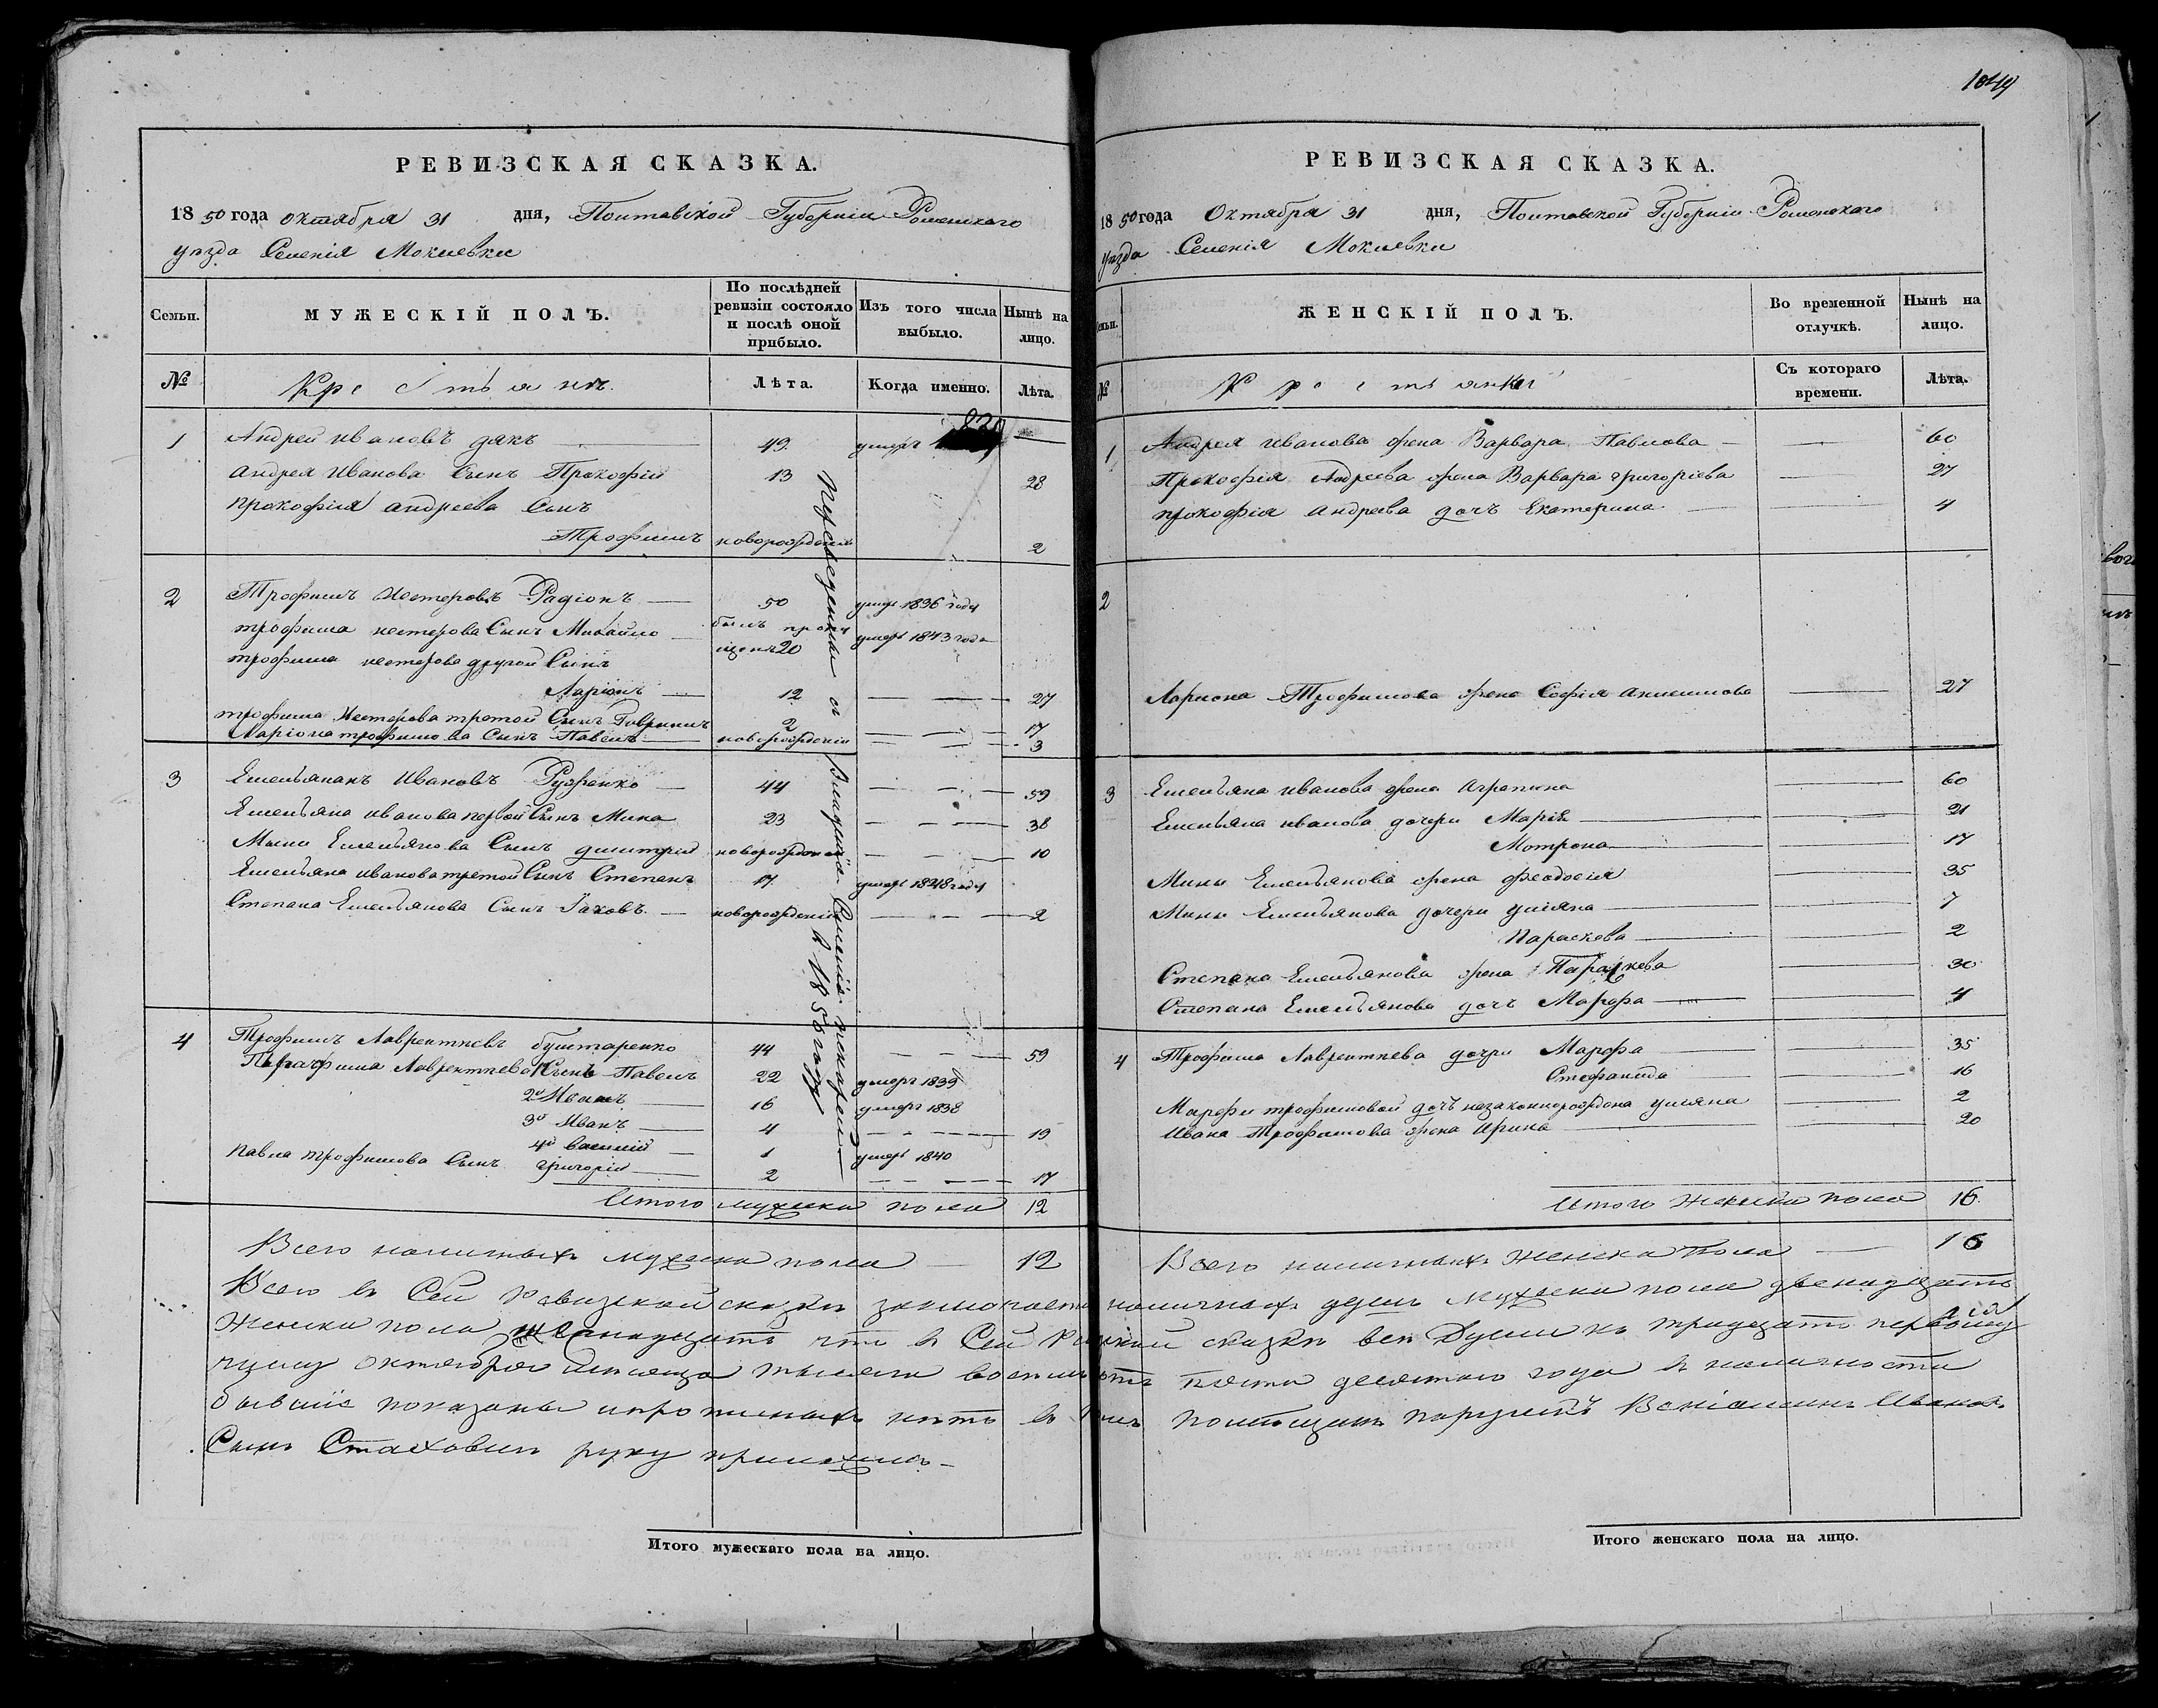 1049
РЕВИЗСКАЯ СКАЗКА.
1850 года октября 31 дня, Полтавской Губерніи Роменскаго
уѣзда Селенія Мокиевки
Семьи. МУЖЕСКІЙ ПОЛЪ. По послѣдней ревизіи состояло и послѣ оной прибыло. Изъ того числа выбыло. Нынѣ на лицо.
№ Крестьянъ. Лѣта. Когда именно. Лѣта.
1 Андрей Ивановъ дякъ 49. умеръ
Андрея Иванова Сынъ Прокофій 13 28
Прокофія андреева Сынъ
Трофимъ новорожденъ 2
2 Трофимъ Нестеровъ Радіонъ 50 умеръ 1836 года
трофима нестерова Сынъ Михайло былъ 20 умеръ 1843 года
трофима нестерова другой Сынъ
Ларіонъ 12 27
трофима Нестерова третой Сынъ 2 17
Ларіона трофимова Сынъ Павелъ новорожденъ 3
3 Емельянъ Ивановъ Руденко 44 59
Емельяна иванова первой Сынъ Мина 23 38
Мины Емельянова Сынъ димитрій новорожденъ 10
Емельяна иванова третой Сынъ Степанъ 17. умеръ 1848 года
Степана Емельянова Сынъ Іаковъ новорожденъ 2
4 Трофимъ Лаврентиевъ 44 59
Трофима Лаврентиева Сынъ Павелъ 22 умеръ 1839
2й Иванъ 16 умеръ 1838
3й Иванъ 4 19
4й василий 1 умеръ 1840
Павла трофимова Сынъ григорій 2 17
Итого мужеска пола 12
Всего наличныхъ мужска пола 12
Переведенны съ Селенія в 1835 году
РЕВИЗСКАЯ СКАЗКА.
1850 года Октября 31 дня, Полтавской Губерніи Роменскаго
уѣзда Селенія Мокиевки
Семьи. ЖЕНСКІЙ ПОЛЪ. Во временной отлучкѣ. Нынѣ на лицо.
№ Крестьянки Съ котораго времени. Лѣта.
1 Андрея иванова жена Варвара Павлова 60
Прокофія Андреева жена Варвара григоріева 27
прокофія андреева дочъ Екатерина 4
2
Лариона Трофимова жена Софія 27
3 Емельяна иванова жена Агрепина 60
Емельяна иванова дочери Марія 21
Мотрона 17
Мины Емельянова жена феодосія 35
Мины Емельянова дочери уляна 7
Параскева 2
Степана Емельянова жена Параскева 30
Степана Емельянова дочъ Марфа 4
4 Трофима Лаврентиева дочри Марфа 35
Стефанида 16
Марфи трофимовой дочъ незаконнорождена уляна 2
Ивана Трофимова жена Ирина 20
Итого женска пола 16.
Всего наличныхъ женска пола 16
Всего в Сей Ревизской сказкѣ наличныхъ душъ мужеска пола двенадцать
Женска пола что в Сей сказкѣ все Души къ тридцать первому
числу октября месяца тысяча восемьсотъ пятидесятаго года в наличности
бывшіе показаны и прописныхъ нѣтъ в помѣщикъ поручикъ Веніаминъ Ивановъ
Сынъ Стаховичъ руку приложилъ
Итого мужескаго пола на лицо.
Итого женскаго пола на лицо.